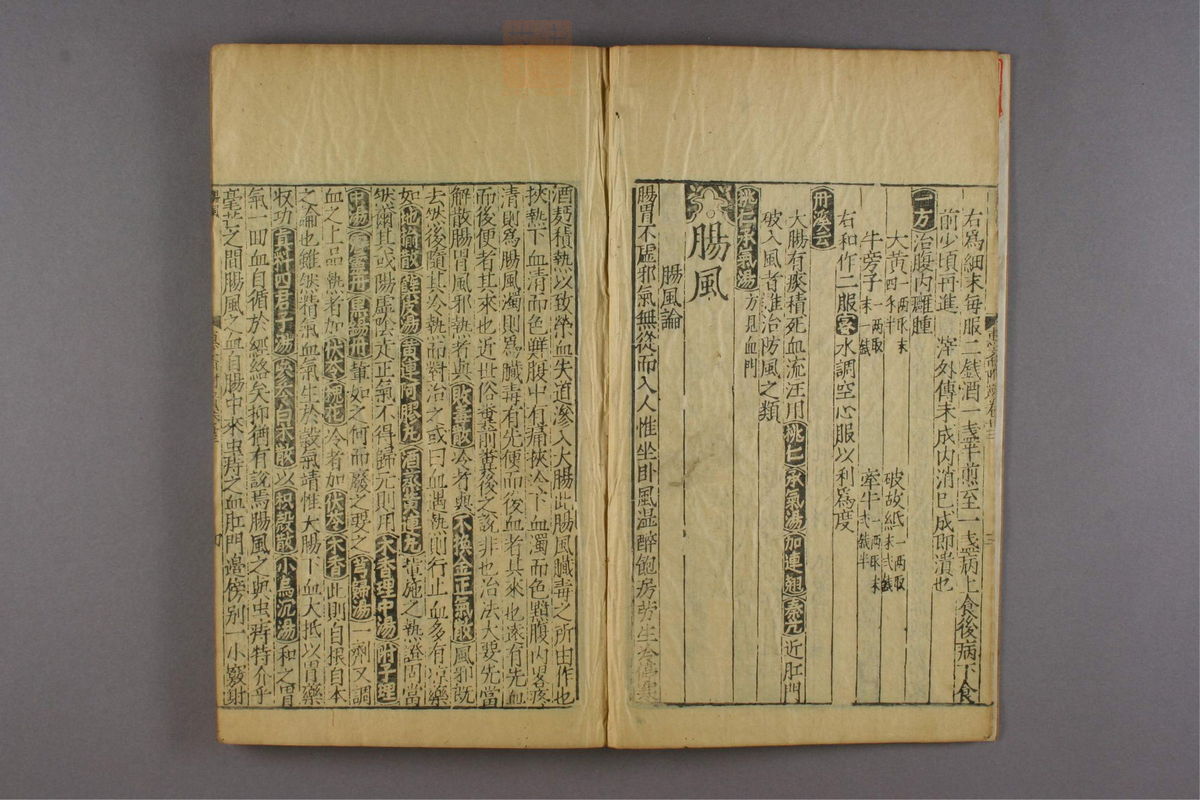 右爲細末每服二戔酒一盞半煎至一盞病上食後病下食
前少頃再進滓外傅末成内消已成即潰也
一方 治腹内癰腫
大黄一兩取末四戔半 破故紙一兩取末弍戔
牛旁子一兩取末一戔 牽牛一兩取末弍戔半
右和作二服蜜水調空心服以利爲度
丹溪云
大腸有痰積死血流注用桃仁承氣湯加連翹秦艽近肛門
破入風者難治防風之類
桃仁承氣湯方見血門
腸風
腸風論
腸胃不虛邪氣無從而入人惟坐卧風湿醉飽房勞生冷停寒
酒麪積熱以致榮血失道滲入大腸此腸風臟毒之所由作也
挾熱下血清而色鮮腹中有痛挾冷下血濁而色黯腹内畧疼
清則爲腸風濁則爲臟毒有先便而後血者其來也遠有先血
而後便者其來也近世俗糞前糞後之說非也治法大要先當
解散腸胃風邪熱者與敗毒散冷者與不換金正氣散風邪既
去然後隨其冷熱而對治之或曰血遇熱則行止血多有凉藥
如地榆散蝟皮湯黄連阿膠丸酒蒸黄連丸對施之熱證固當
然爾其或陽虛陰走正氣不得歸元則用木香理中湯附子理
中湯震靈丹黑錫丹輩如之何而廢之要之芎歸湯一劑又調
血之上品熱者加茯苓槐花冷者加茯苓木香此則自根自本
之論也雖然精氣血氣生於穀氣靖惟大腸下血大抵以胃藥
收功真料四君子湯參苓白朮散以枳殼散小烏沉湯和之胃
氣一回血自循於經絡矣抑猶有說焉腸風之與虫痔特介乎
毫芒之間腸風之血自腸中來虫痔之血肛門邊傍别一小竅射